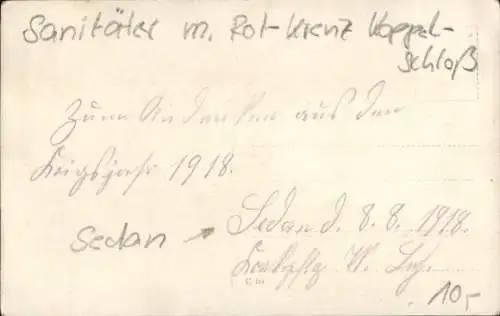 Sanitäter m. Rot-Kreuz Koppel-
schloß
Zum Andenken aus dem
Kriegsjahr 1918.
Sedan → Sedan d. 8.8.1918.
10,-